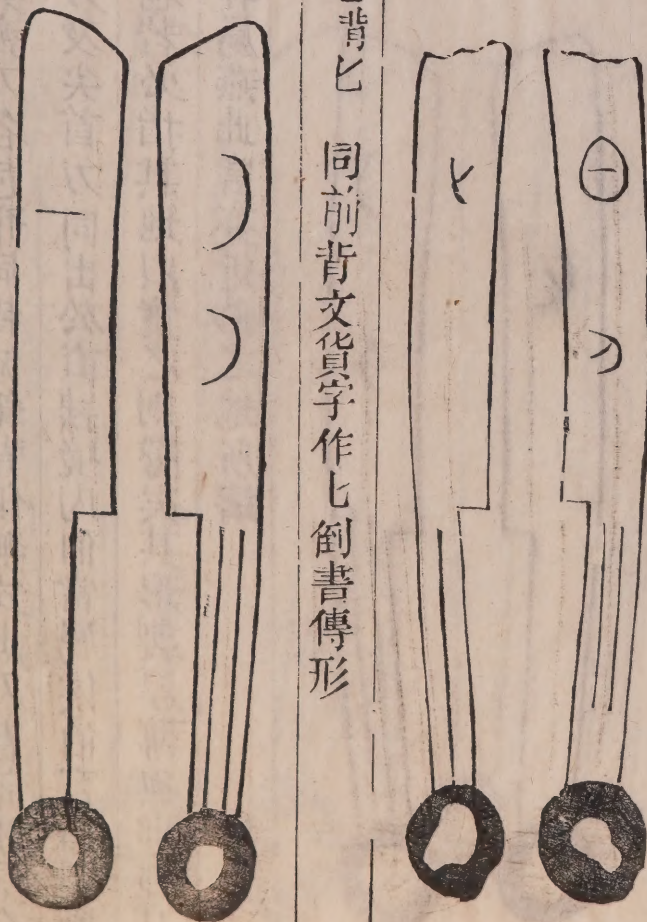 背匕 同前背文貨字作匕倒書傳形
一